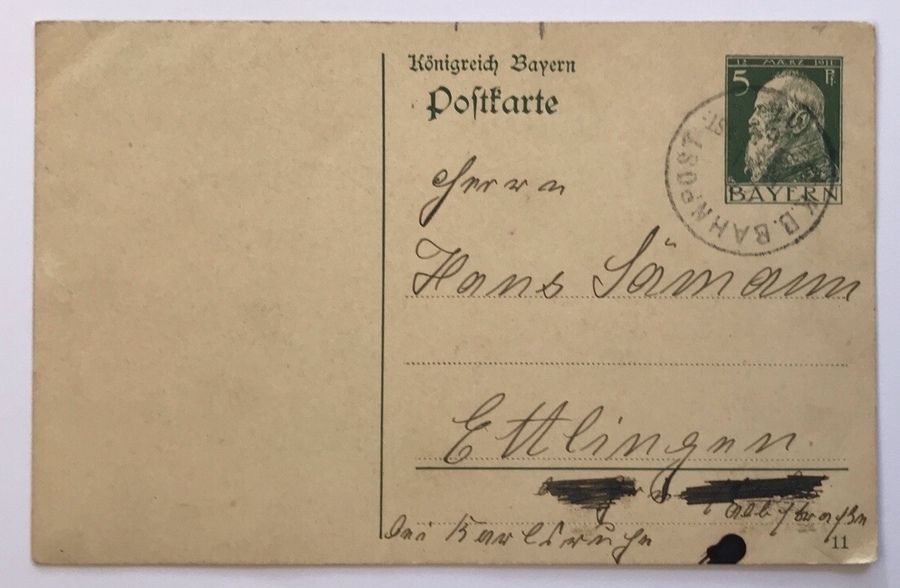 Königreich Bayern
Postkarte
12 MÄRZ 1911
5 Pf.
BAYERN
K.B. BAHNPOST
Herrn
Hans Sämann
Ettlingen
Albstraße
bei Karlsruhe
11